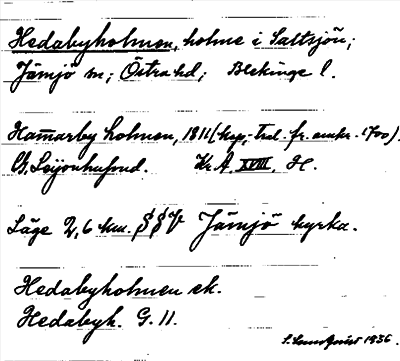 Hedabyholmen, holme i Saltsjön;
Jämjö sn; Östra hd; Blekinge l.
Hammarby holmen, 1811 (kop.-trol. fr. omkr. 1700).
G. Leijonhufvud. Kr. A. XVIII. H.
Läge 2,6 km. SSV Jämjö kyrka.
Hedabyholmen ek.
Hedabyh. G. 11.
1936.